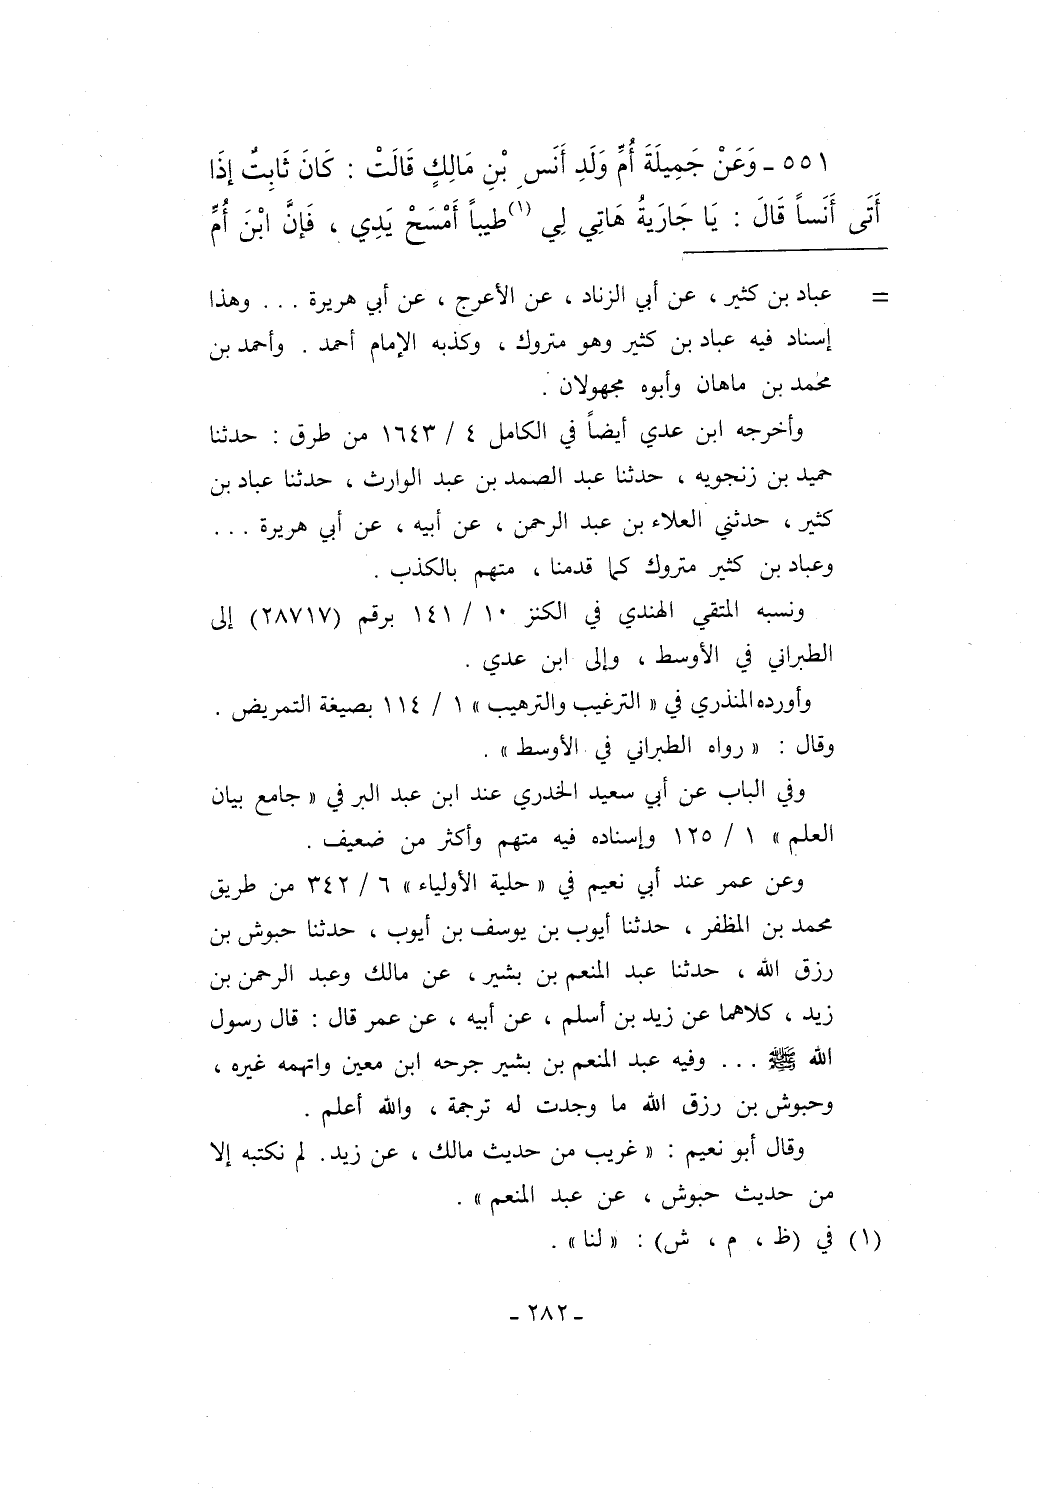 ٥٥١ ـ وَعَنْ جَمِيلَةَ أُمِّ وَلَدِ أَنَسِ بْنِ مَالِكٍ قَالَتْ : كَانَ ثَابِتٌ إِذَا
أَتَى أَنَساً قَالَ : يَا جَارِيَةُ هَاتِي لِي (١) طيباً أَمْسَحْ يَدِي ، فَإِنَّ ابْنَ أُمِّ
= عباد بن كثير ، عن أبي الزناد ، عن الأعرج ، عن أبي هريرة ... وهذا
إسناد فيه عباد بن كثير وهو متروك ، وكذبه الإمام أحمد . وأحمد بن
محمد بن ماهان وأبوه مجهولان .
وأخرجه ابن عدي أيضاً في الكامل ٤ / ١٦٤٣ من طرق : حدثنا
حميد بن زنجويه ، حدثنا عبد الصمد بن عبد الوارث ، حدثنا عباد بن
كثير ، حدثني العلاء بن عبد الرحمن ، عن أبيه ، عن أبي هريرة ...
وعباد بن كثير متروك كما قدمنا ، متهم بالكذب .
ونسبه المتقي الهندي في الكنز ١٠ / ١٤١ برقم (٢٨٧١٧) إلى
الطبراني في الأوسط ، وإلى ابن عدي .
وأورده المنذري في « الترغيب والترهيب » ١ / ١١٤ بصيغة التمريض .
وقال : « رواه الطبراني في الأوسط » .
وفي الباب عن أبي سعيد الخدري عند ابن عبد البر في « جامع بيان
العلم » ١ / ١٢٥ وإسناده فيه متهم وأكثر من ضعيف .
وعن عمر عند أبي نعيم في « حلية الأولياء » ٦ / ٣٤٢ من طريق
محمد بن المظفر ، حدثنا أيوب بن يوسف بن أيوب ، حدثنا حبوش بن
رزق الله ، حدثنا عبد المنعم بن بشير ، عن مالك وعبد الرحمن بن
زيد ، كلاهما عن زيد بن أسلم ، عن أبيه ، عن عمر قال : قال رسول
الله ﷺ ... وفيه عبد المنعم بن بشير جرحه ابن معين واتهمه غيره ،
وحبوش بن رزق الله ما وجدت له ترجمة ، والله أعلم .
وقال أبو نعيم : « غريب من حديث مالك ، عن زيد. لم نكتبه إلا
من حديث حبوش ، عن عبد المنعم » .
(١) في (ظ ، م ، ش) : « لنا » .
ـ ٢٨٢ ـ